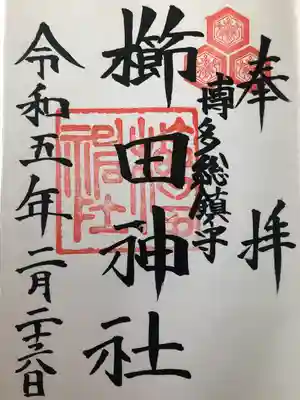 奉拝
博多総鎮守
櫛田神社
令和五年二月二十六日